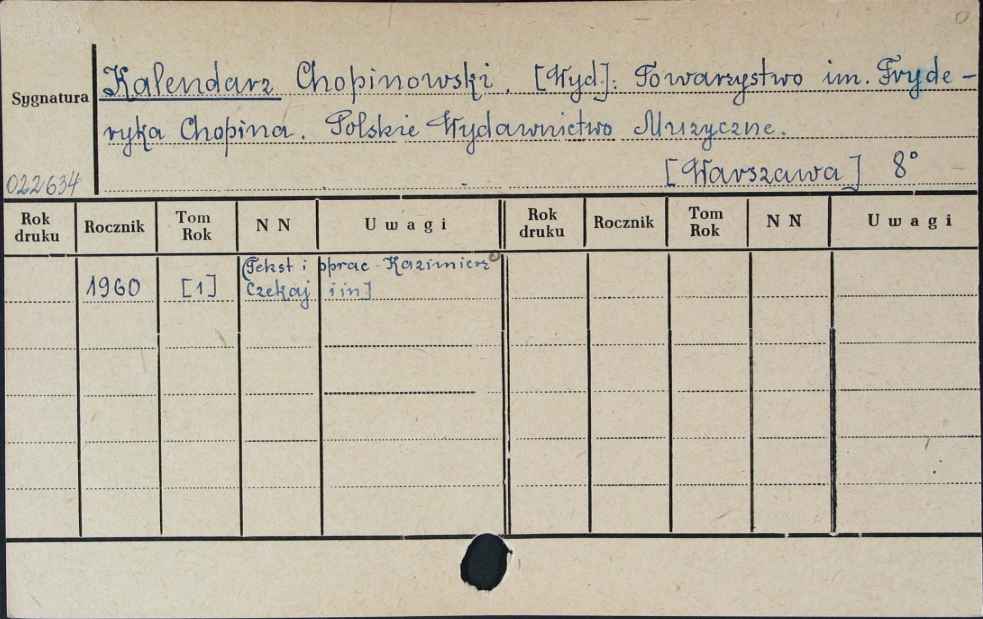 Sygnatura
Kalendarz Chopinowski. [Wyd]: Towarzystwo im. Fryde-
ryka Chopina. Polskie Wydawnictwo Muzyczne.
022634
[Warszawa] 8°
Rok druku Rocznik Tom Rok N N Uwagi Rok druku Rocznik Tom Rok N N Uwagi
(Tekst i oprac. Kazimierz
1960 [1] Czekaj i in]